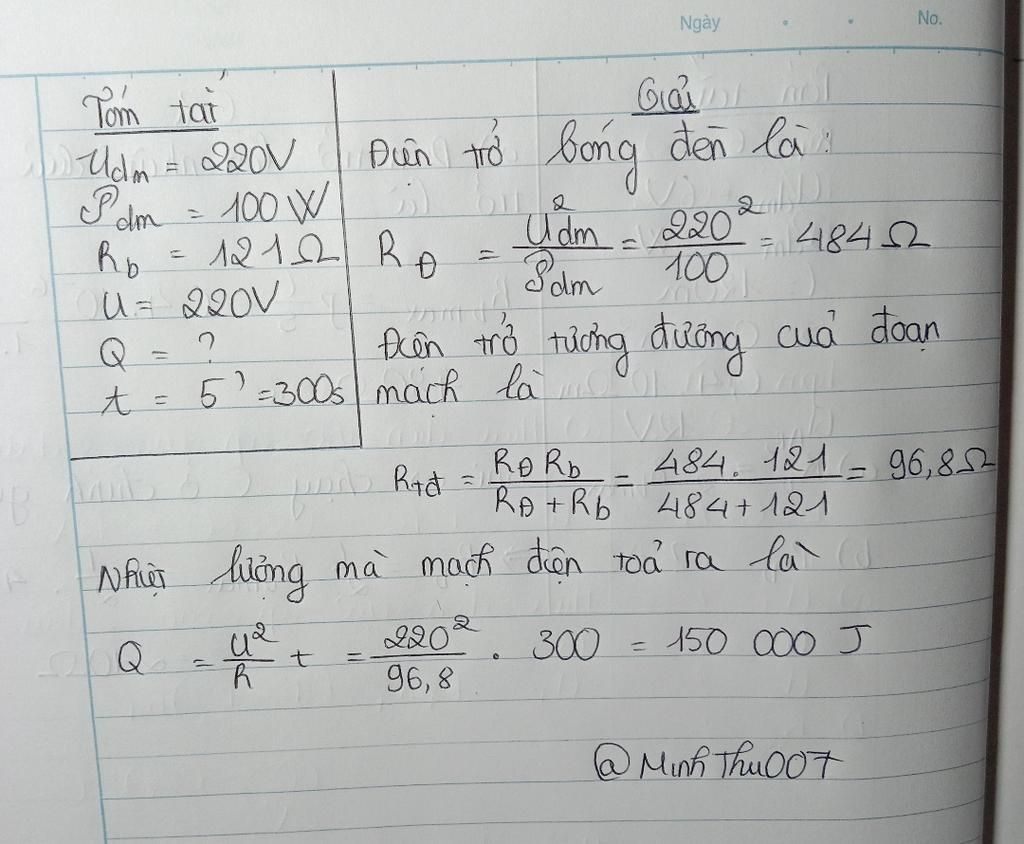 Ngày
No.
Tóm tắt
Uđm = 220V
Pđm = 100 W
Rb = 121Ω
U = 220V
Q = ?
t = 5' = 300s
Giải
Điện trở bóng đèn là:
RĐ = U²đm / Pđm = 220² / 100 = 484 Ω
Điện trở tương đương của đoạn
mạch là
Rtđ = RĐ Rb / RĐ + Rb = 484. 121 / 484 + 121 = 96,8Ω
Nhiệt lượng mà mạch điện toả ra là
Q = U² / R t = 220² / 96,8 . 300 = 150 000 J
@MinhThu007